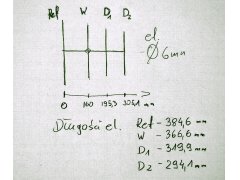 Ref W D1 D2
el.
Ø 6mm
0 160 195,3 305,1 mm
Długość el.
Ref - 384,6 mm
W - 366,6 mm
D1 - 319,9 mm
D2 - 294,1 mm